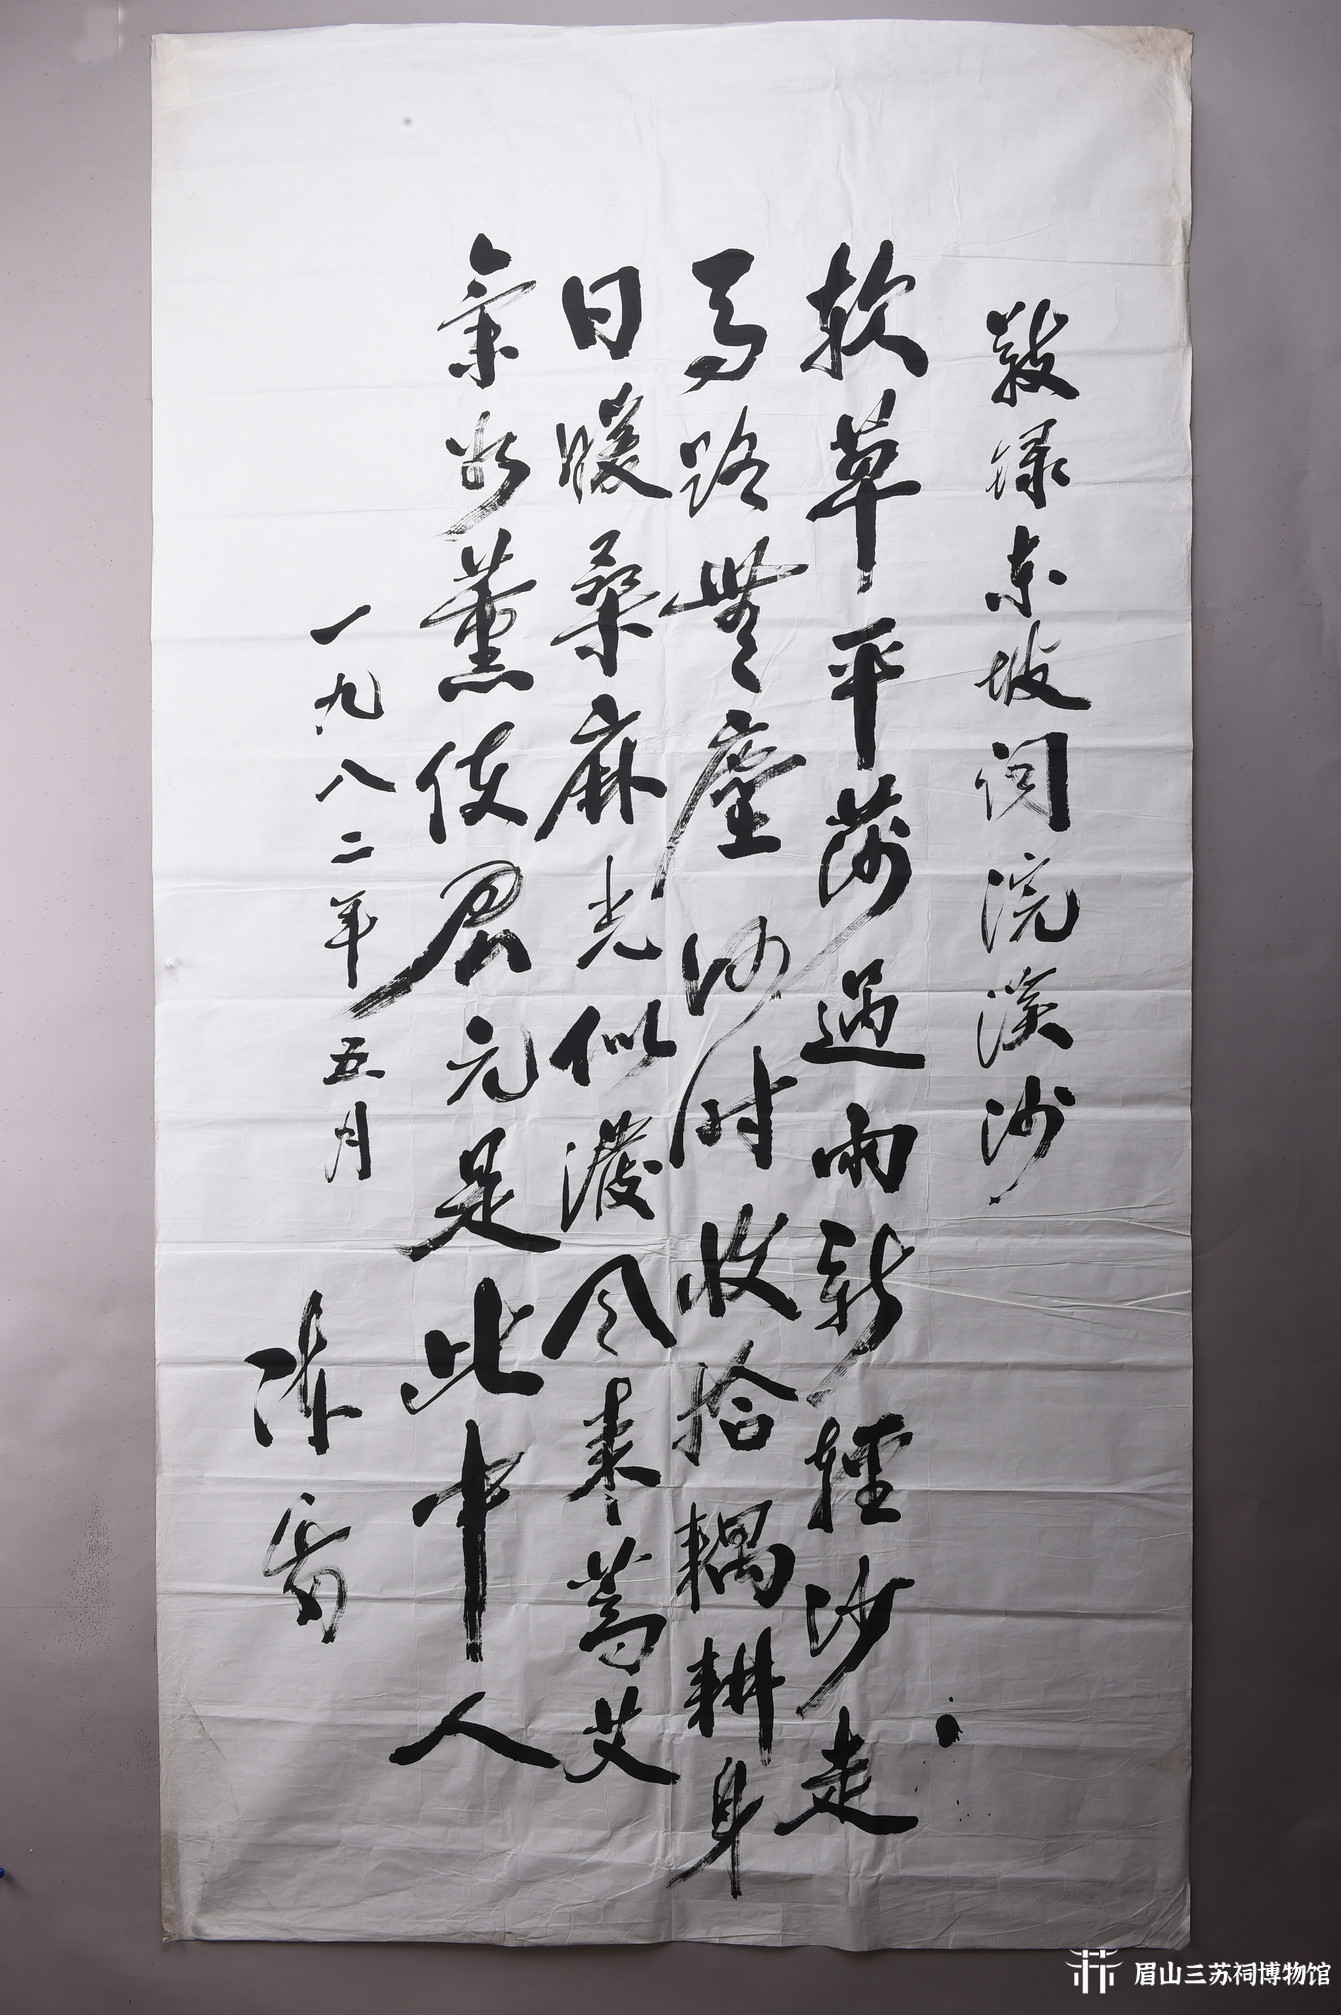 敬录东坡词浣溪沙
软草平莎过雨新轻沙走
马路无尘何时收拾耦耕身
日暖桑麻光似泼风来蒿艾
气如薰使君元是此中人
一九八二年五月
陈雷
眉山三苏祠博物馆